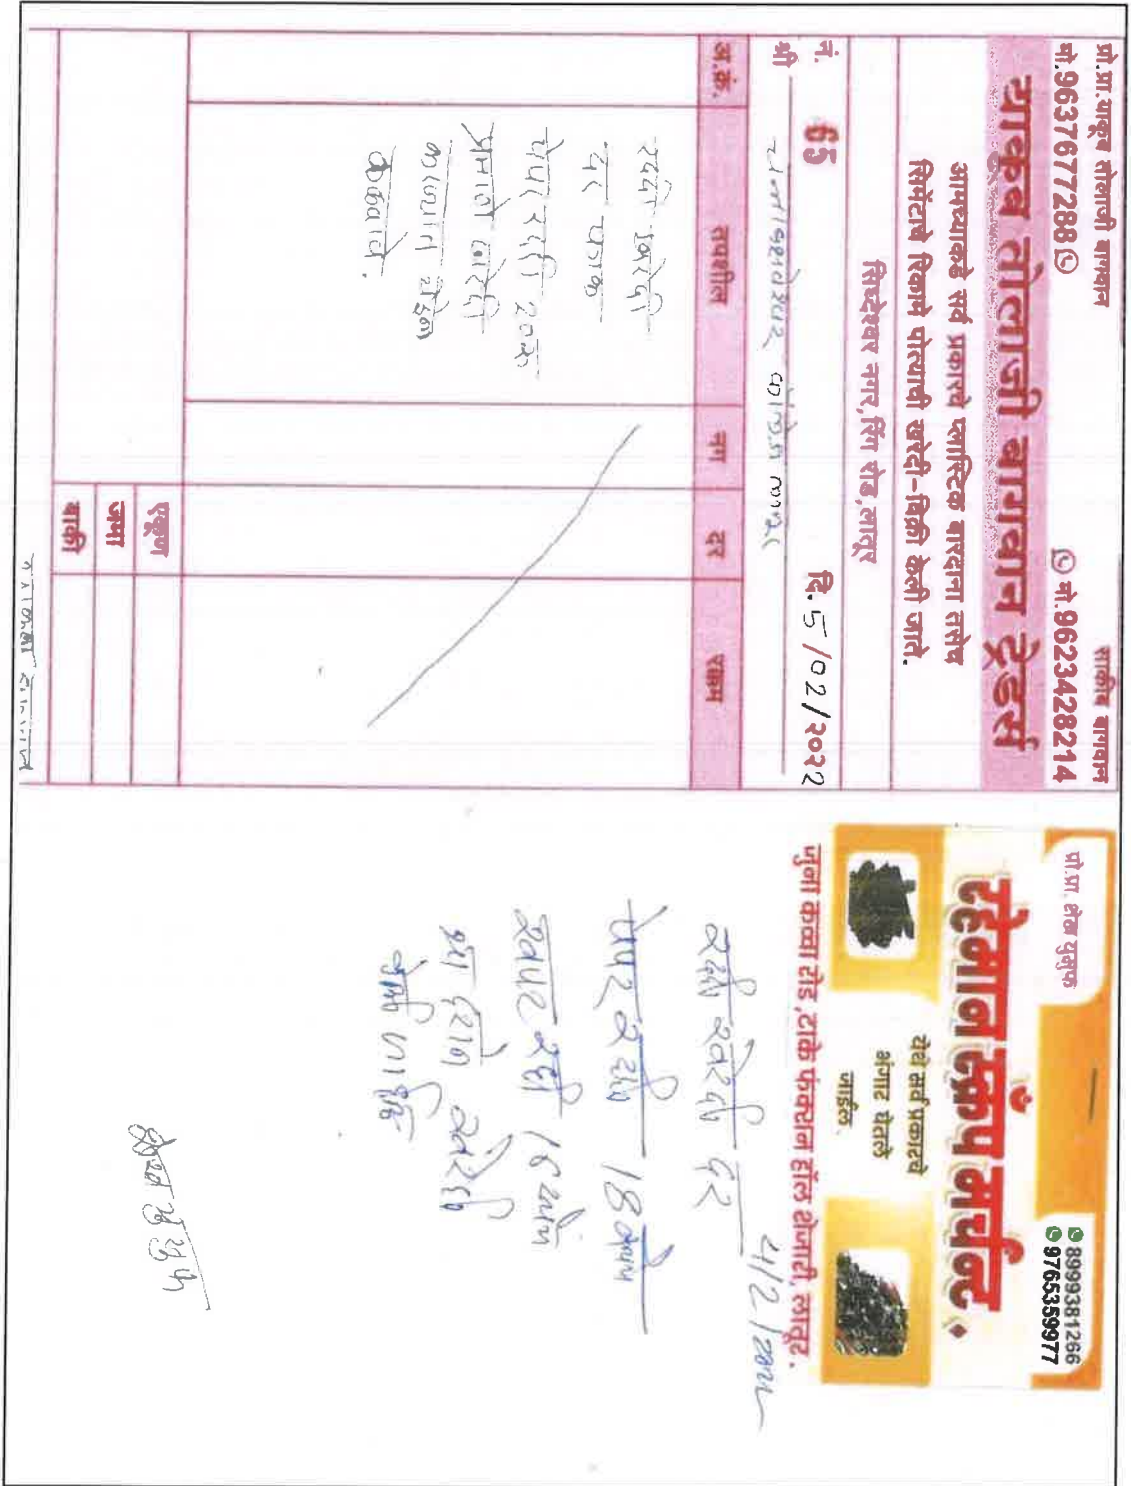 प्रो.प्रा.याकूब तोलाजी बागवान
साकीब बागवान
मो.9637677288
मो.9623428214
याकूब तोलाजी बागवान ट्रेडर्स
आमच्याकडे सर्व प्रकारचे प्लास्टिक बारदाना तसेच
सिमेंटाचे रिकामे पोत्याची खरेदी-विक्री केली जाते.
सिध्देश्वर नगर, रिंग रोड, लातूर
नं. 65 दि. 5/02/२०२२
श्री
अ.क्रं. तपशील नग दर रक्कम
रद्दी खरेदी
दर पत्रक
पेपर रद्दी २०रु
प्रमाणे खरेदी
कळवावे.
एकूण
जमा
बाकी
प्रो.प्रा. शेख युसुफ
8999381266
9765359977
रहेमान स्क्रॅप मर्चंन्ट
येथे सर्व प्रकारचे
भंगार घेतले
जाईल.
जुना कव्हा रोड, टाके फंक्शन हॉल शेजारी, लातूर.
4/2/2022
रद्दी खरेदी दर
पेपर रद्दी 18 रुपये
रद्दी 16 रुपये
खरेदी
शेख युसुफ